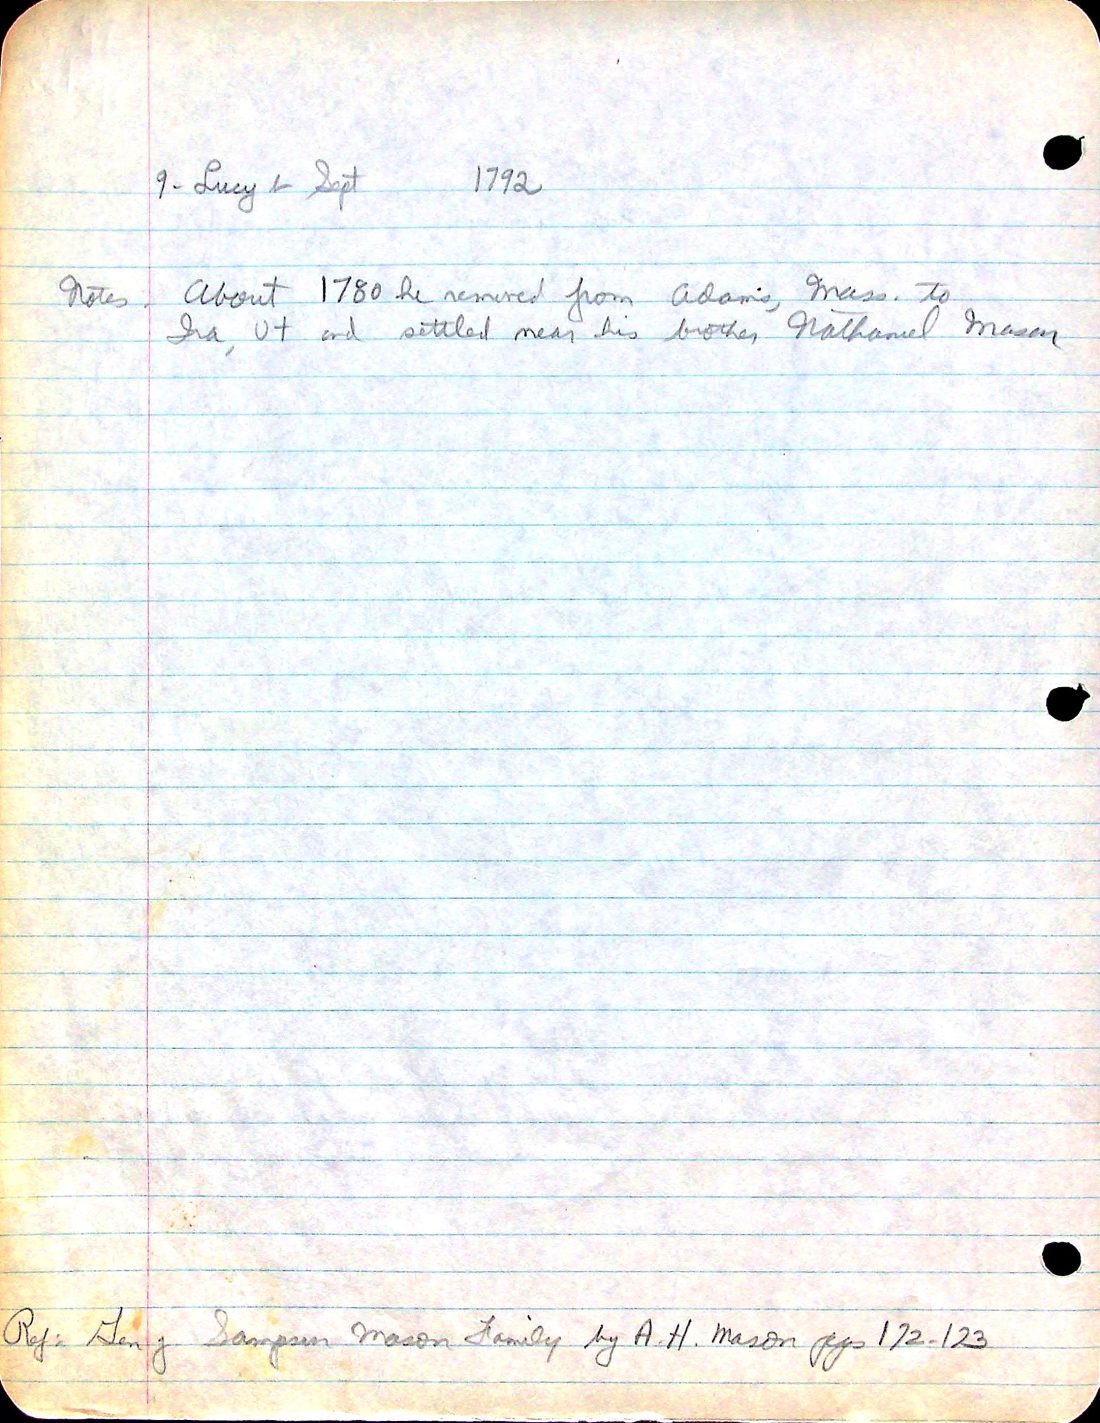 9- Lucy b Sept 1792
Notes. About 1780 he removed from Adams, Mass. to
Ira, Vt and settled near his brother Nathaniel Mason
Ref: Gen of Sampson Mason Family by A.H. Mason pgs 122-123